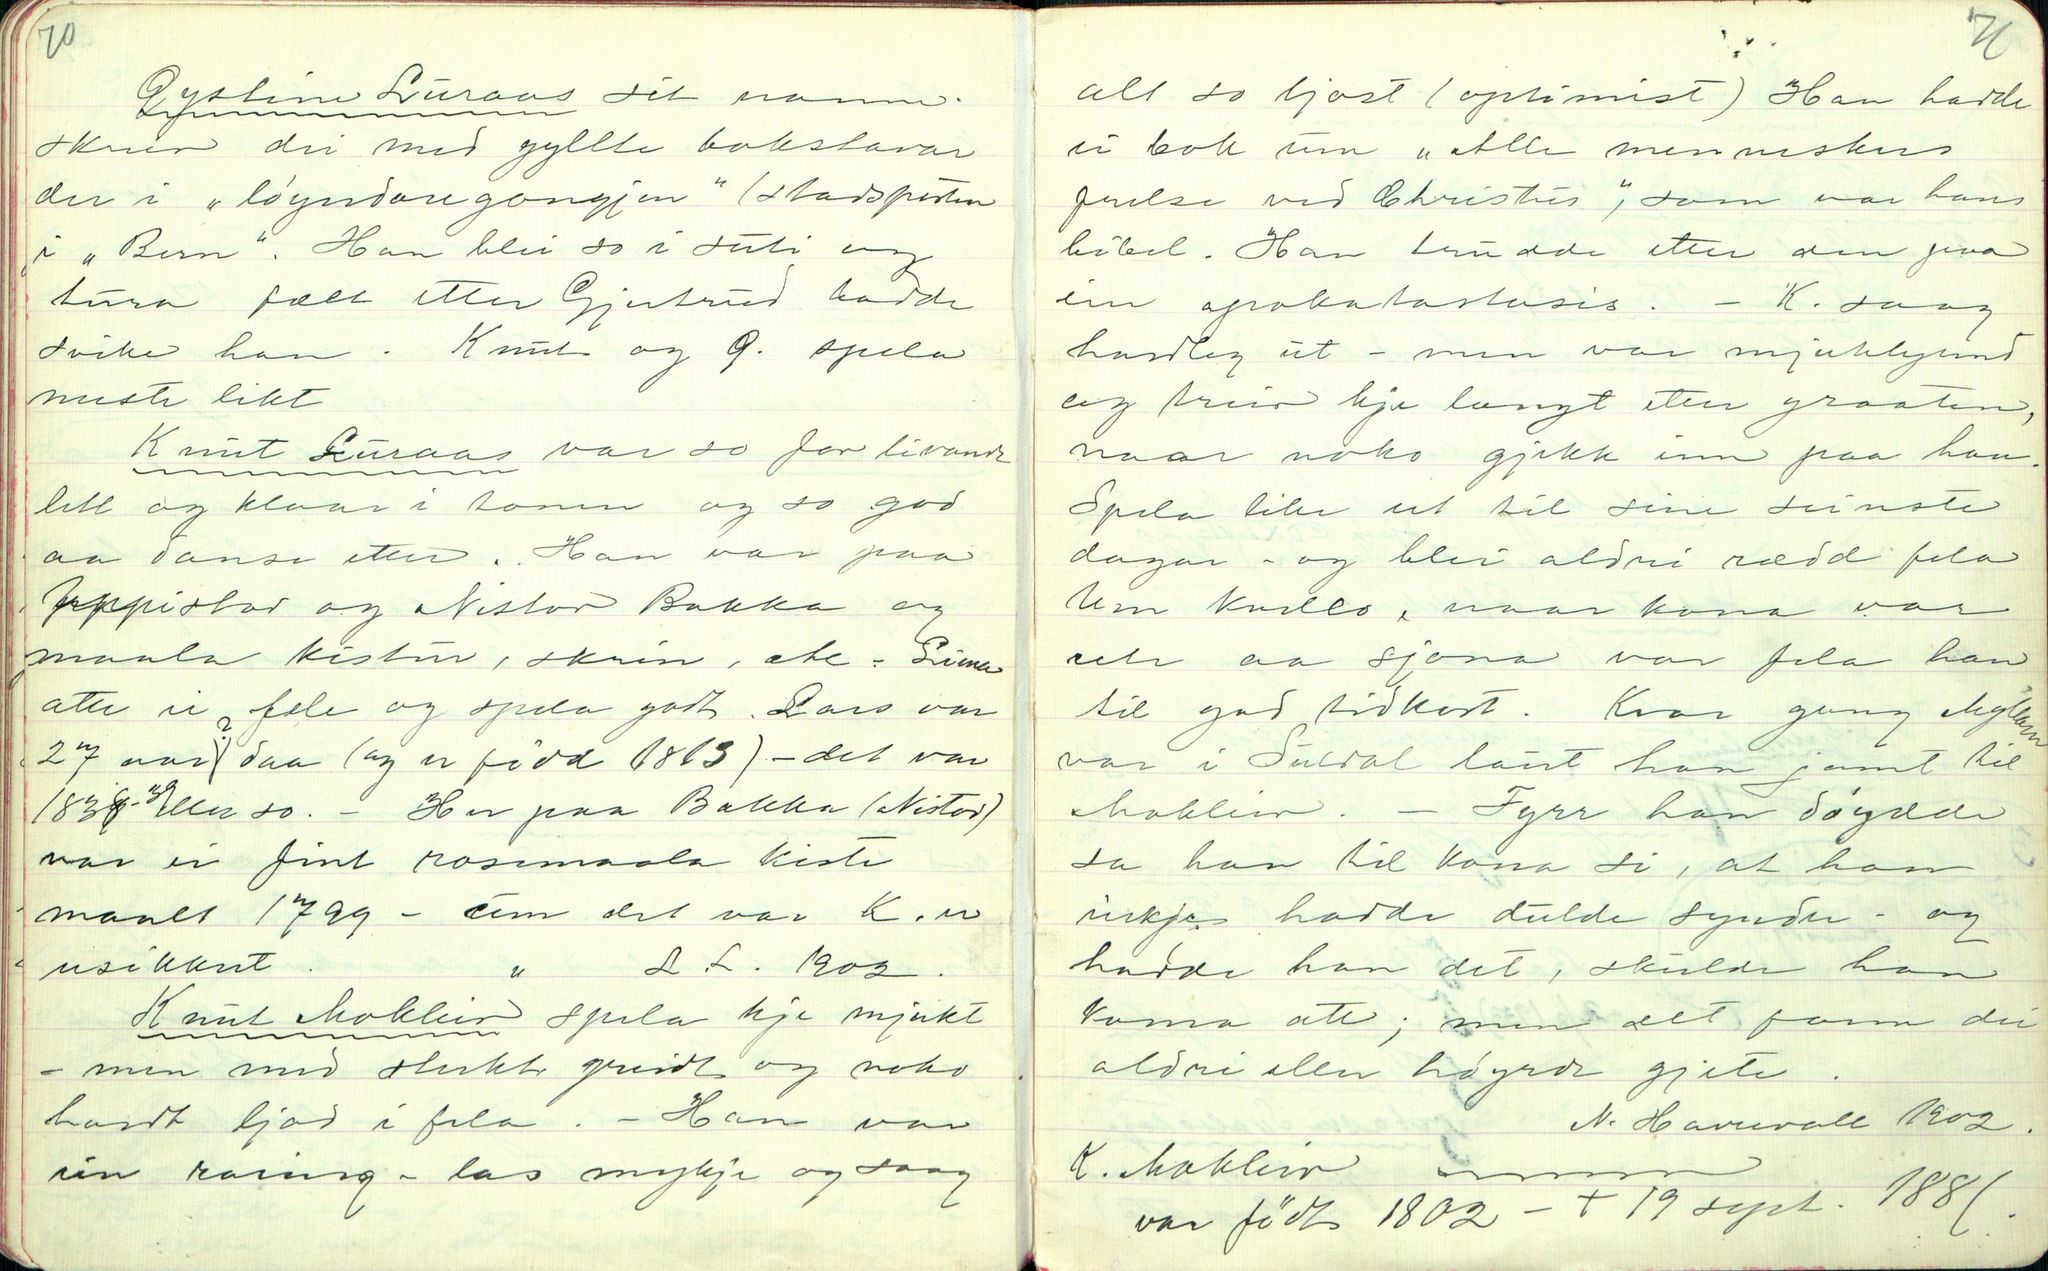 70
Øystein Luraas sit namn.
skrev dei med gyllte bokstavar
der i „løyndaregangjen" (stadsporten
i „Bern". Han blei so i suti og
tura fælt etter Gjertrud hadde
svike han. Knut og Ø. spela
meste likt
Knut Luraas var so for livande
lett og klaar i tonen og so god
aa danse etter. Han var paa
Juppistod og Nistod Bakka og
maala kistur, skrin, etc.
atte ei fele og spela godt. Lars var
27 aar? daa (og er född 1813) - det var
1838-39 eller so. - Her paa Bakka (Nistod)
var ei fint rosemaala kiste
maalt 1799 - um det var K. er
usikkert. " L. L. 1902.
Knut Mokleiv spela kje mjukt
- men med sterkt greidt og noko
hardt ljod i fela. - Han var
ein raring - las mykje og saag
71
alt so ljost (optimist) Han hadde
ei bok um „Alle menneskers
frelse ved Christus", som var hans
bibel. Han trudde etter den paa
ein apokatastasis. - K. saag
hardleg ut - men var mjuklynd
og treiv kje langt etter graaten,
naar noko gjekk inn paa han.
Spela like ut til sine seinste
dagar - og blei aldri rædd fela
Um kveldo, naar kona var
ute aa sjona var fela han
til god tidkort. Kvar gang Myllaren
var i Suldal laut han jamt til
Mokleiv. - Fyrr han döydde
sa han til kona si, at han
inkje hadde dulde synder - og
hadde han det, skulde han
koma att; men det fann dei
aldri eller höyrde gjete.
N. Havrevoll 1902.
K. Mokleiv
var födt 1802 - + 19 sept. 1881.